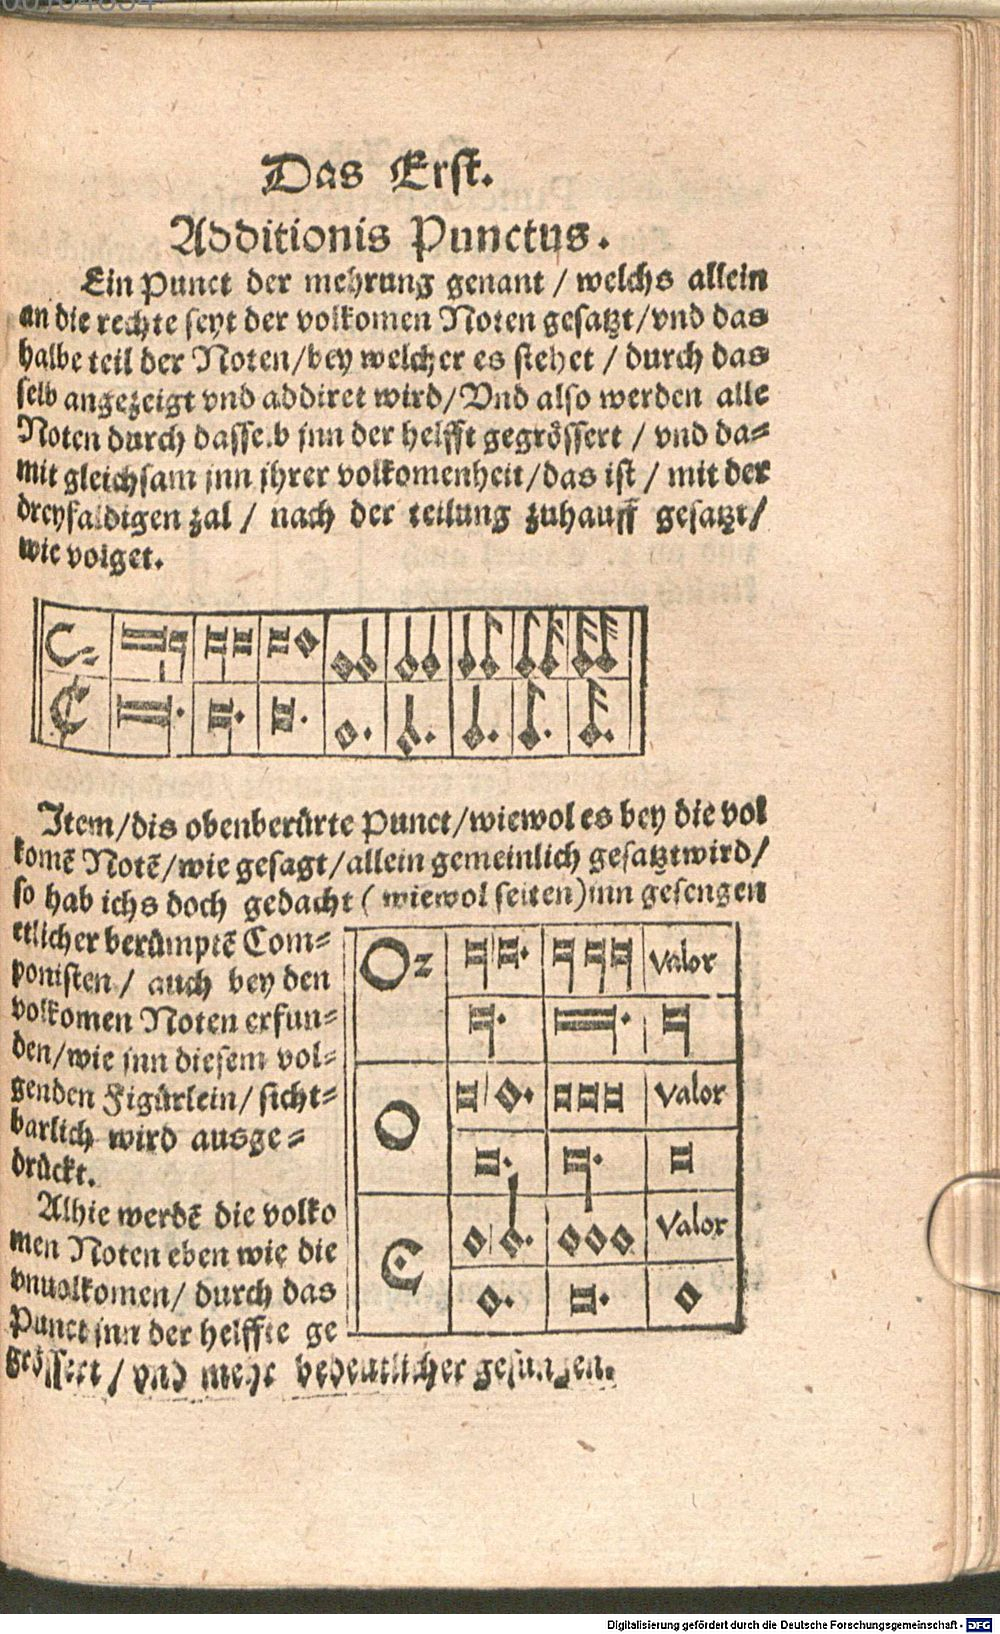 Das Erst.
Additionis Punctus.
Ein Punct der mehrung genant / welchs allein
an die rechte seyt der volkomen Noten gesatzt/vnd das
halbe teil der Noten/bey welcher es stehet / durch das
selb angezeigt vnd addiret wird/Vnd also werden alle
Noten durch dasselb jnn der helfft gegrössert / vnd da=
mit gleichsam jnn jhrer volkomenheit/das ist / mit der
dreyfaldigen zal / nach der teilung zuhauff gesatzt/
wie volget.
Item/dis obenberürte Punct/wiewol es bey die vol
komē Notē/wie gesagt/allein gemeinlich gesatzt wird/
so hab ichs doch gedacht ( wiewol selten)inn gesengen
etlicher berümptē Com=
ponisten / auch bey den
volkomen Noten erfun=
den/wie jnn diesem vol=
genden Figürlein/ sicht=
barlich wird ausge=
drückt.
Alhie werdē die volko
men Noten eben wie die
vnuolkomen/ durch das
Punct jnn der helffte ge
grössert / vnd mehr bedeutlicher gesungen.
O2 valor
O valor
valor
Digitalisierung gefördert durch die Deutsche Forschungsgemeinschaft - DFG